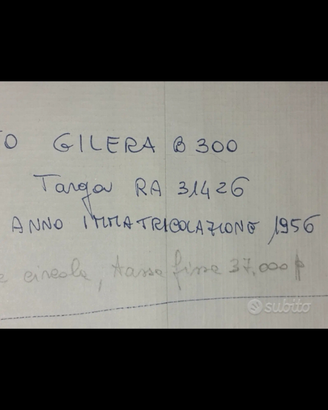 TO GILERA B 300
Targa RA 31426
ANNO IMMATRICOLAZIONE 1956
e circola, tassa fissa 37.000
subito